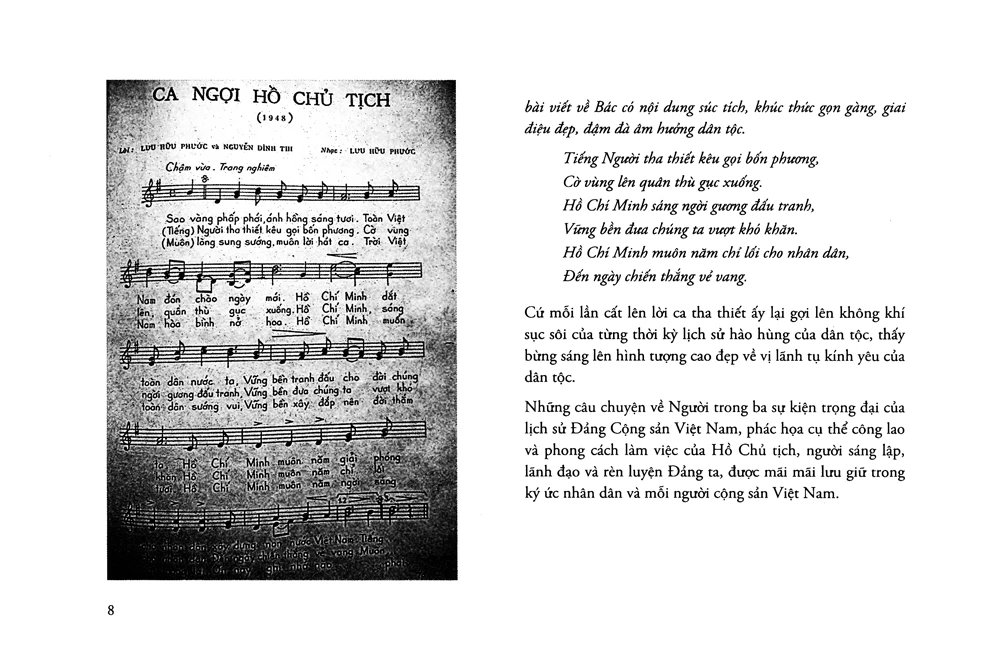 CA NGỢI HỒ CHỦ TỊCH
(1948)
Lời: LƯU HỮU PHƯỚC và NGUYỄN ĐÌNH THI Nhạc: LƯU HỮU PHƯỚC
Chậm vừa. Trang nghiêm
Sao vàng phấp phới, ánh hồng sáng tươi. Toàn Việt
(Tiếng) Người tha thiết kêu gọi bốn phương. Cờ vùng
(Muôn) lòng sung sướng, muôn lời hát ca. Trời Việt
Nam đón chào ngày mới. Hồ Chí Minh dắt
lên, quân thù gục xuống. Hồ Chí Minh, sáng
Nam hòa bình nở hoa. Hồ Chí Minh muôn
toàn dân nước ta, Vững bền tranh đấu cho đời chúng
ngời gương đấu tranh, Vững bền đưa chúng ta vượt khó
toàn dân sướng vui, Vững bền xây đắp nên đời thắm
ta Hồ Chí Minh muôn năm giải phóng
khăn Hồ Chí Minh muôn năm chỉ lối
tươi Hồ Chí Minh muôn năm ngời sáng
nhân dân xây dựng nước Việt Nam. Tiếng
nhân dân ngày chiến thắng vẻ vang Muôn
8
bài viết về Bác có nội dung súc tích, khúc thức gọn gàng, giai
điệu đẹp, đậm đà âm hưởng dân tộc.
Tiếng Người tha thiết kêu gọi bốn phương,
Cờ vùng lên quân thù gục xuống.
Hồ Chí Minh sáng ngời gương đấu tranh,
Vững bền đưa chúng ta vượt khó khăn.
Hồ Chí Minh muôn năm chỉ lối cho nhân dân,
Đến ngày chiến thắng vẻ vang.
Cứ mỗi lần cất lên lời ca tha thiết ấy lại gợi lên không khí
sục sôi của từng thời kỳ lịch sử hào hùng của dân tộc, thấy
bừng sáng lên hình tượng cao đẹp về vị lãnh tụ kính yêu của
dân tộc.
Những câu chuyện về Người trong ba sự kiện trọng đại của
lịch sử Đảng Cộng sản Việt Nam, phác họa cụ thể công lao
và phong cách làm việc của Hồ Chủ tịch, người sáng lập,
lãnh đạo và rèn luyện Đảng ta, được mãi mãi lưu giữ trong
ký ức nhân dân và mỗi người cộng sản Việt Nam.